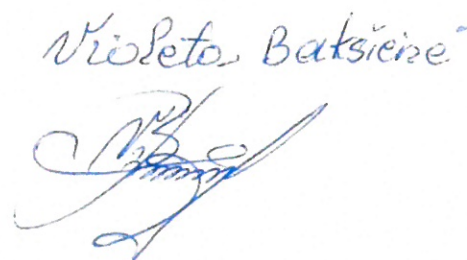 Violeta Bakšienė